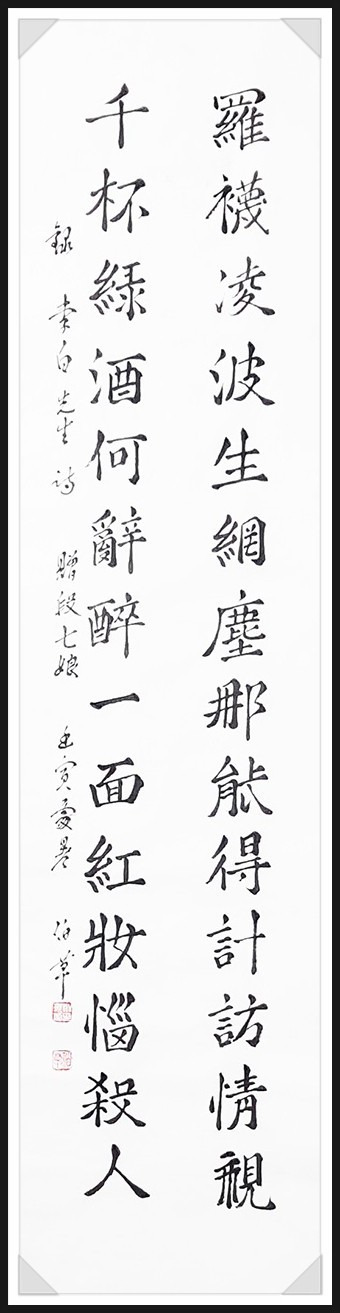 羅襪凌波生網塵那能得計訪情親
千杯綠酒何辭醉一面紅妝惱殺人
錄 李白先生詩 贈段七娘 壬寅夏